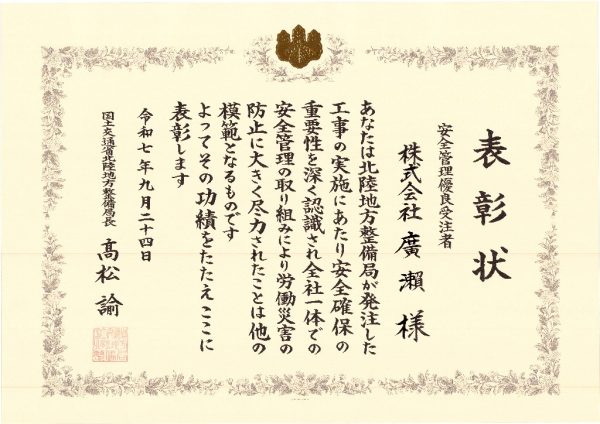 表彰状
安全管理優良受注者
株式会社 廣瀬 様
あなたは北陸地方整備局が発注した
工事の実施にあたり安全確保の
重要性を深く認識され全社一体での
安全管理の取り組みにより労働災害の
防止に大きく尽力されたことは他の
模範となるものです
よってその功績をたたえここに
表彰します
令和七年九月二十四日
国土交通省北陸地方整備局長
髙松 諭